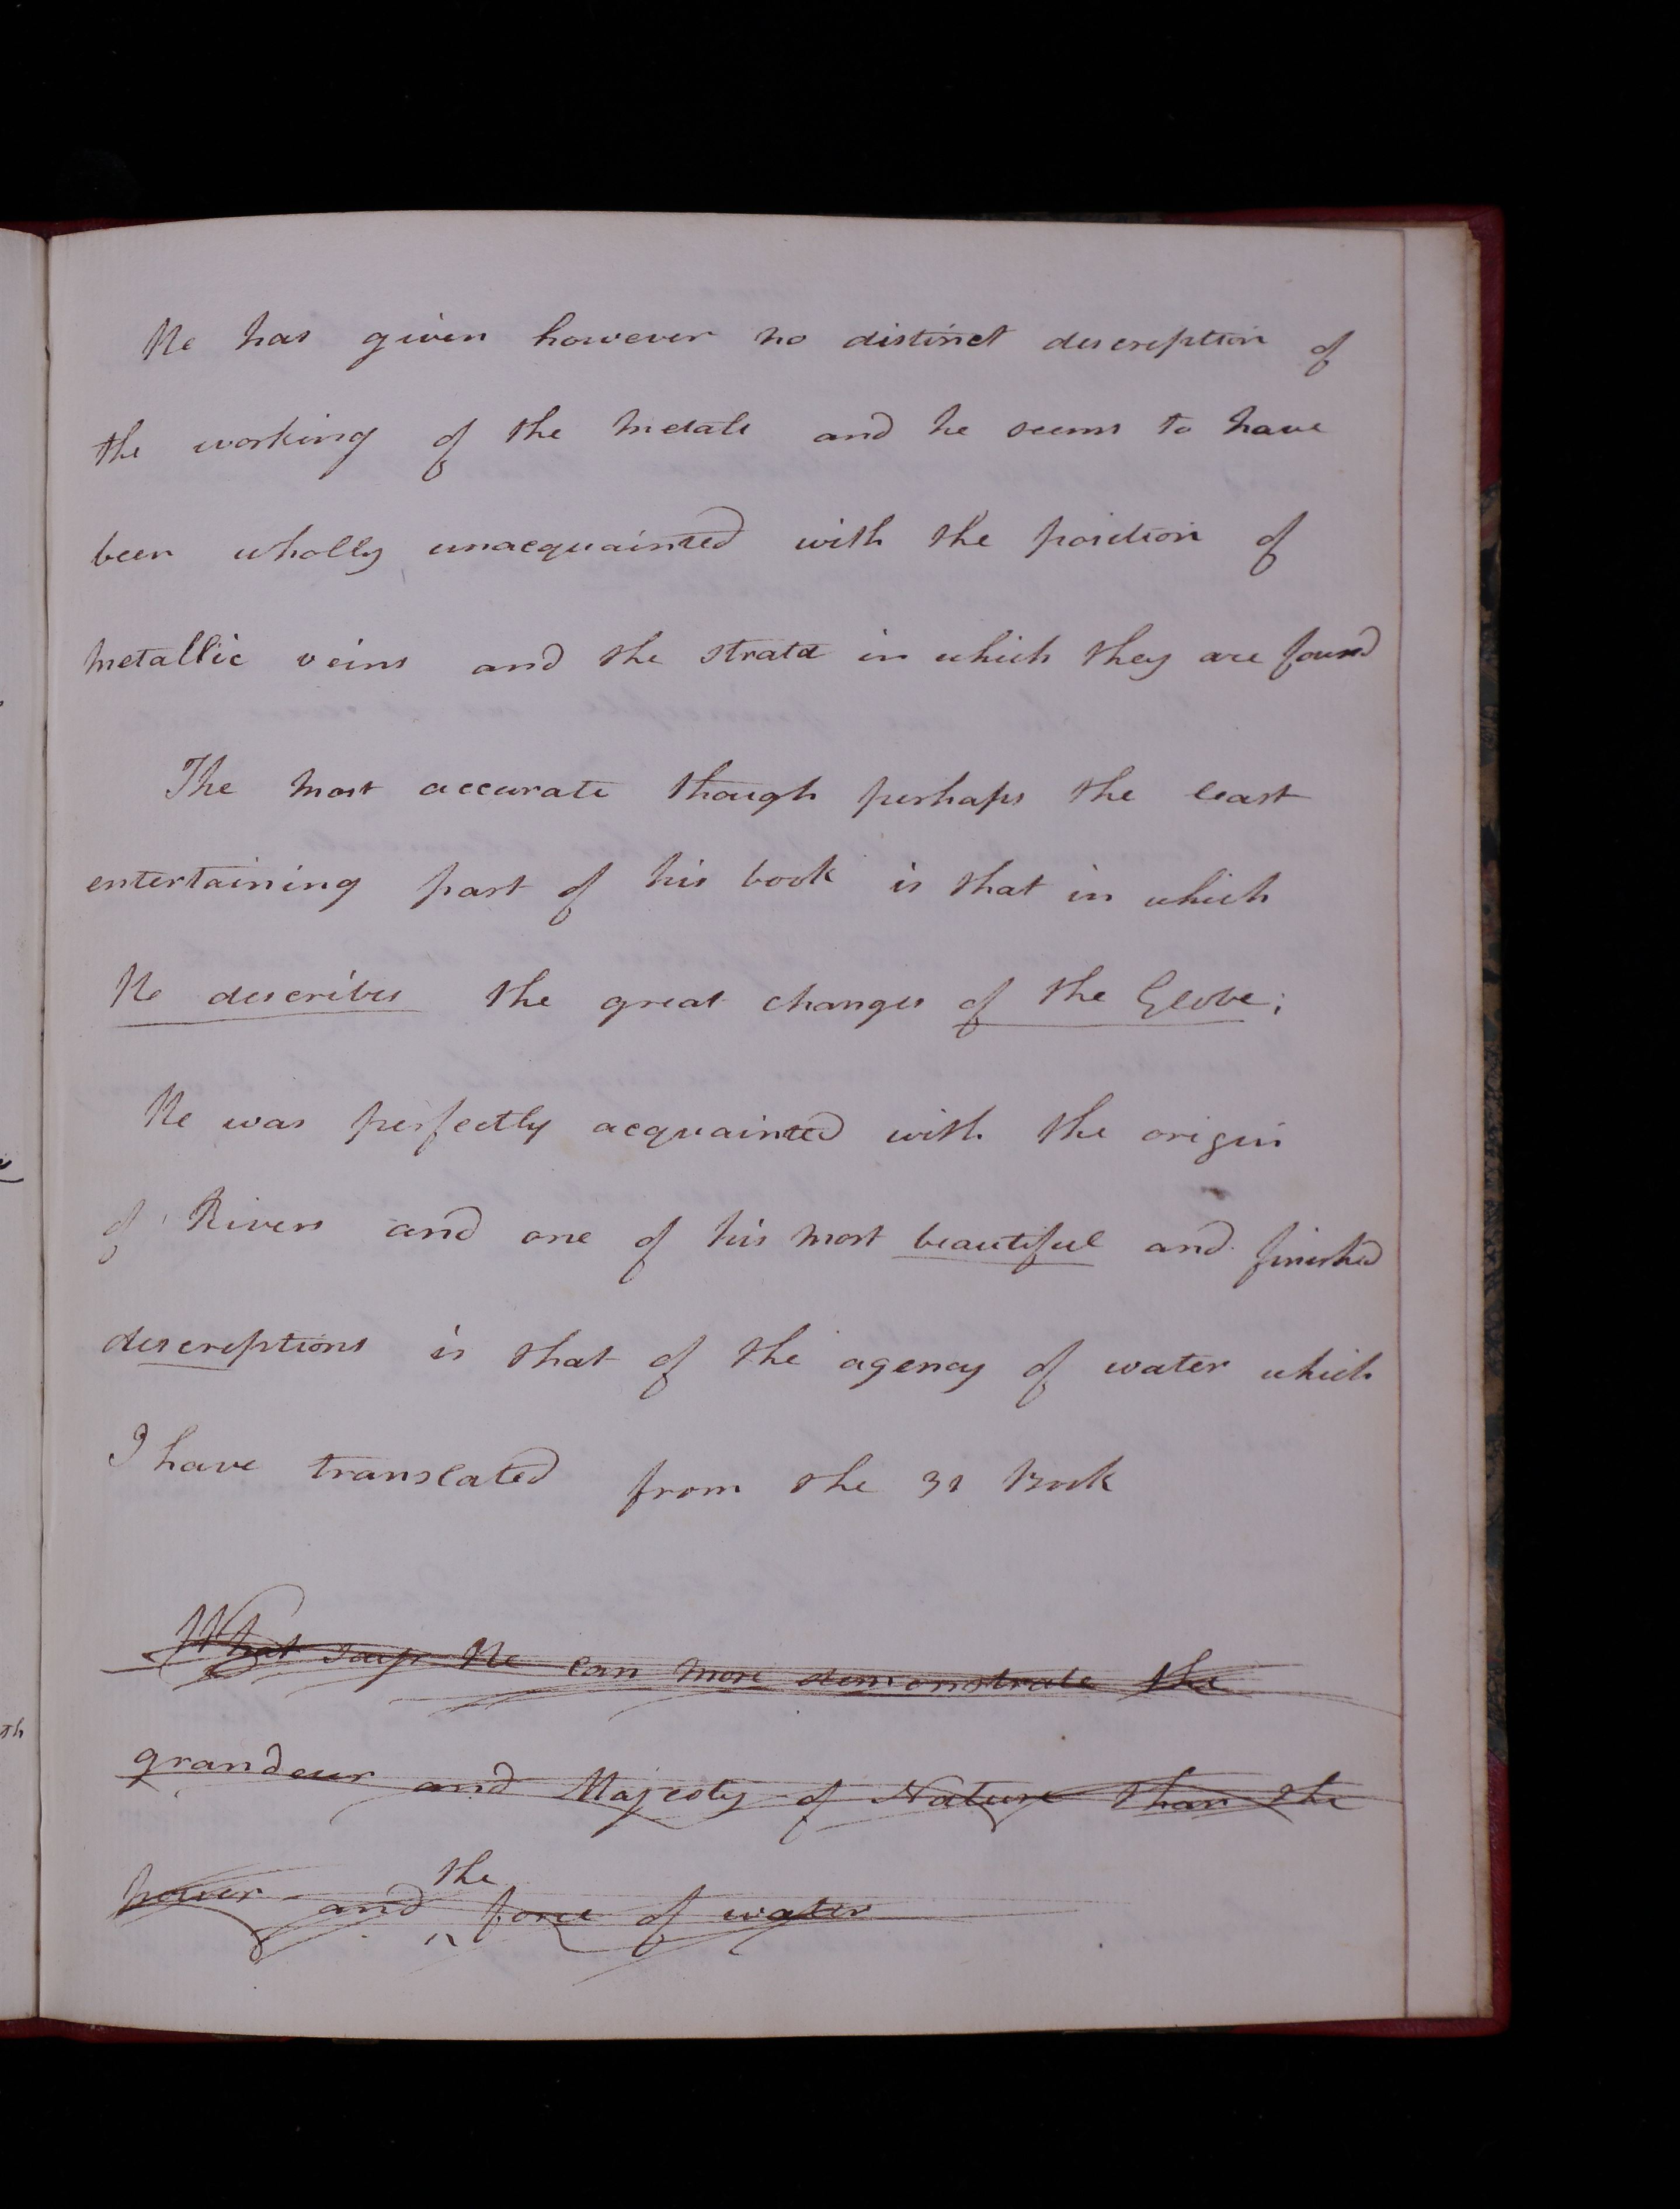 He has given however no distinct description of
the working of the metals and he seems to have
been wholly unacquainted with the position of
metallic veins and the strata in which they are found
The most accurate though perhaps the least
entertaining part of his book is that in which
He describes the great changes of the Globe;
He was perfectly acquainted with the origin
of Rivers and one of his most beautiful and finished
descriptions is that of the agency of water which
I have translated from the 31 Book
What says He can more demonstrate the
grandeur and Majesty of Nature than the
power and the force of water
th